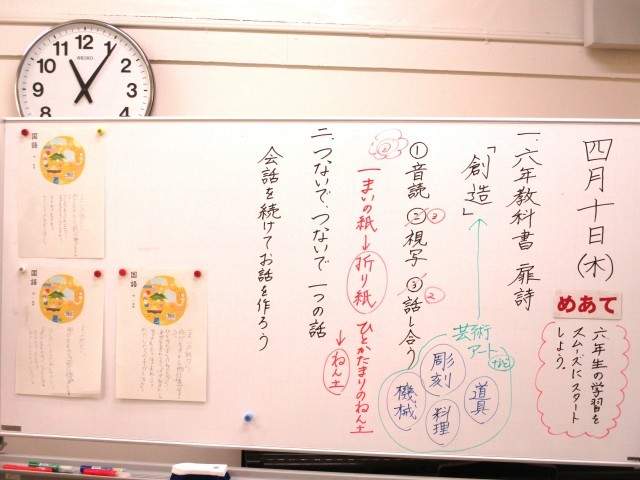 四月十日(木)
めあて
六年生の学習を
スムーズにスタート
しよう。
一、六年教科書 扉詩
「創造」
芸術
アート
など
道具
彫刻
料理
機械
①音読 ②視写 ③話し合う
③
②
一まいの紙→折り紙
ひとかたまりのねん土
→ねん土
二、つないで、つないで一つの話
会話を続けてお話を作ろう
国語
国語
国語
11 12 1
10 2
9 3
8 4
SEIKO